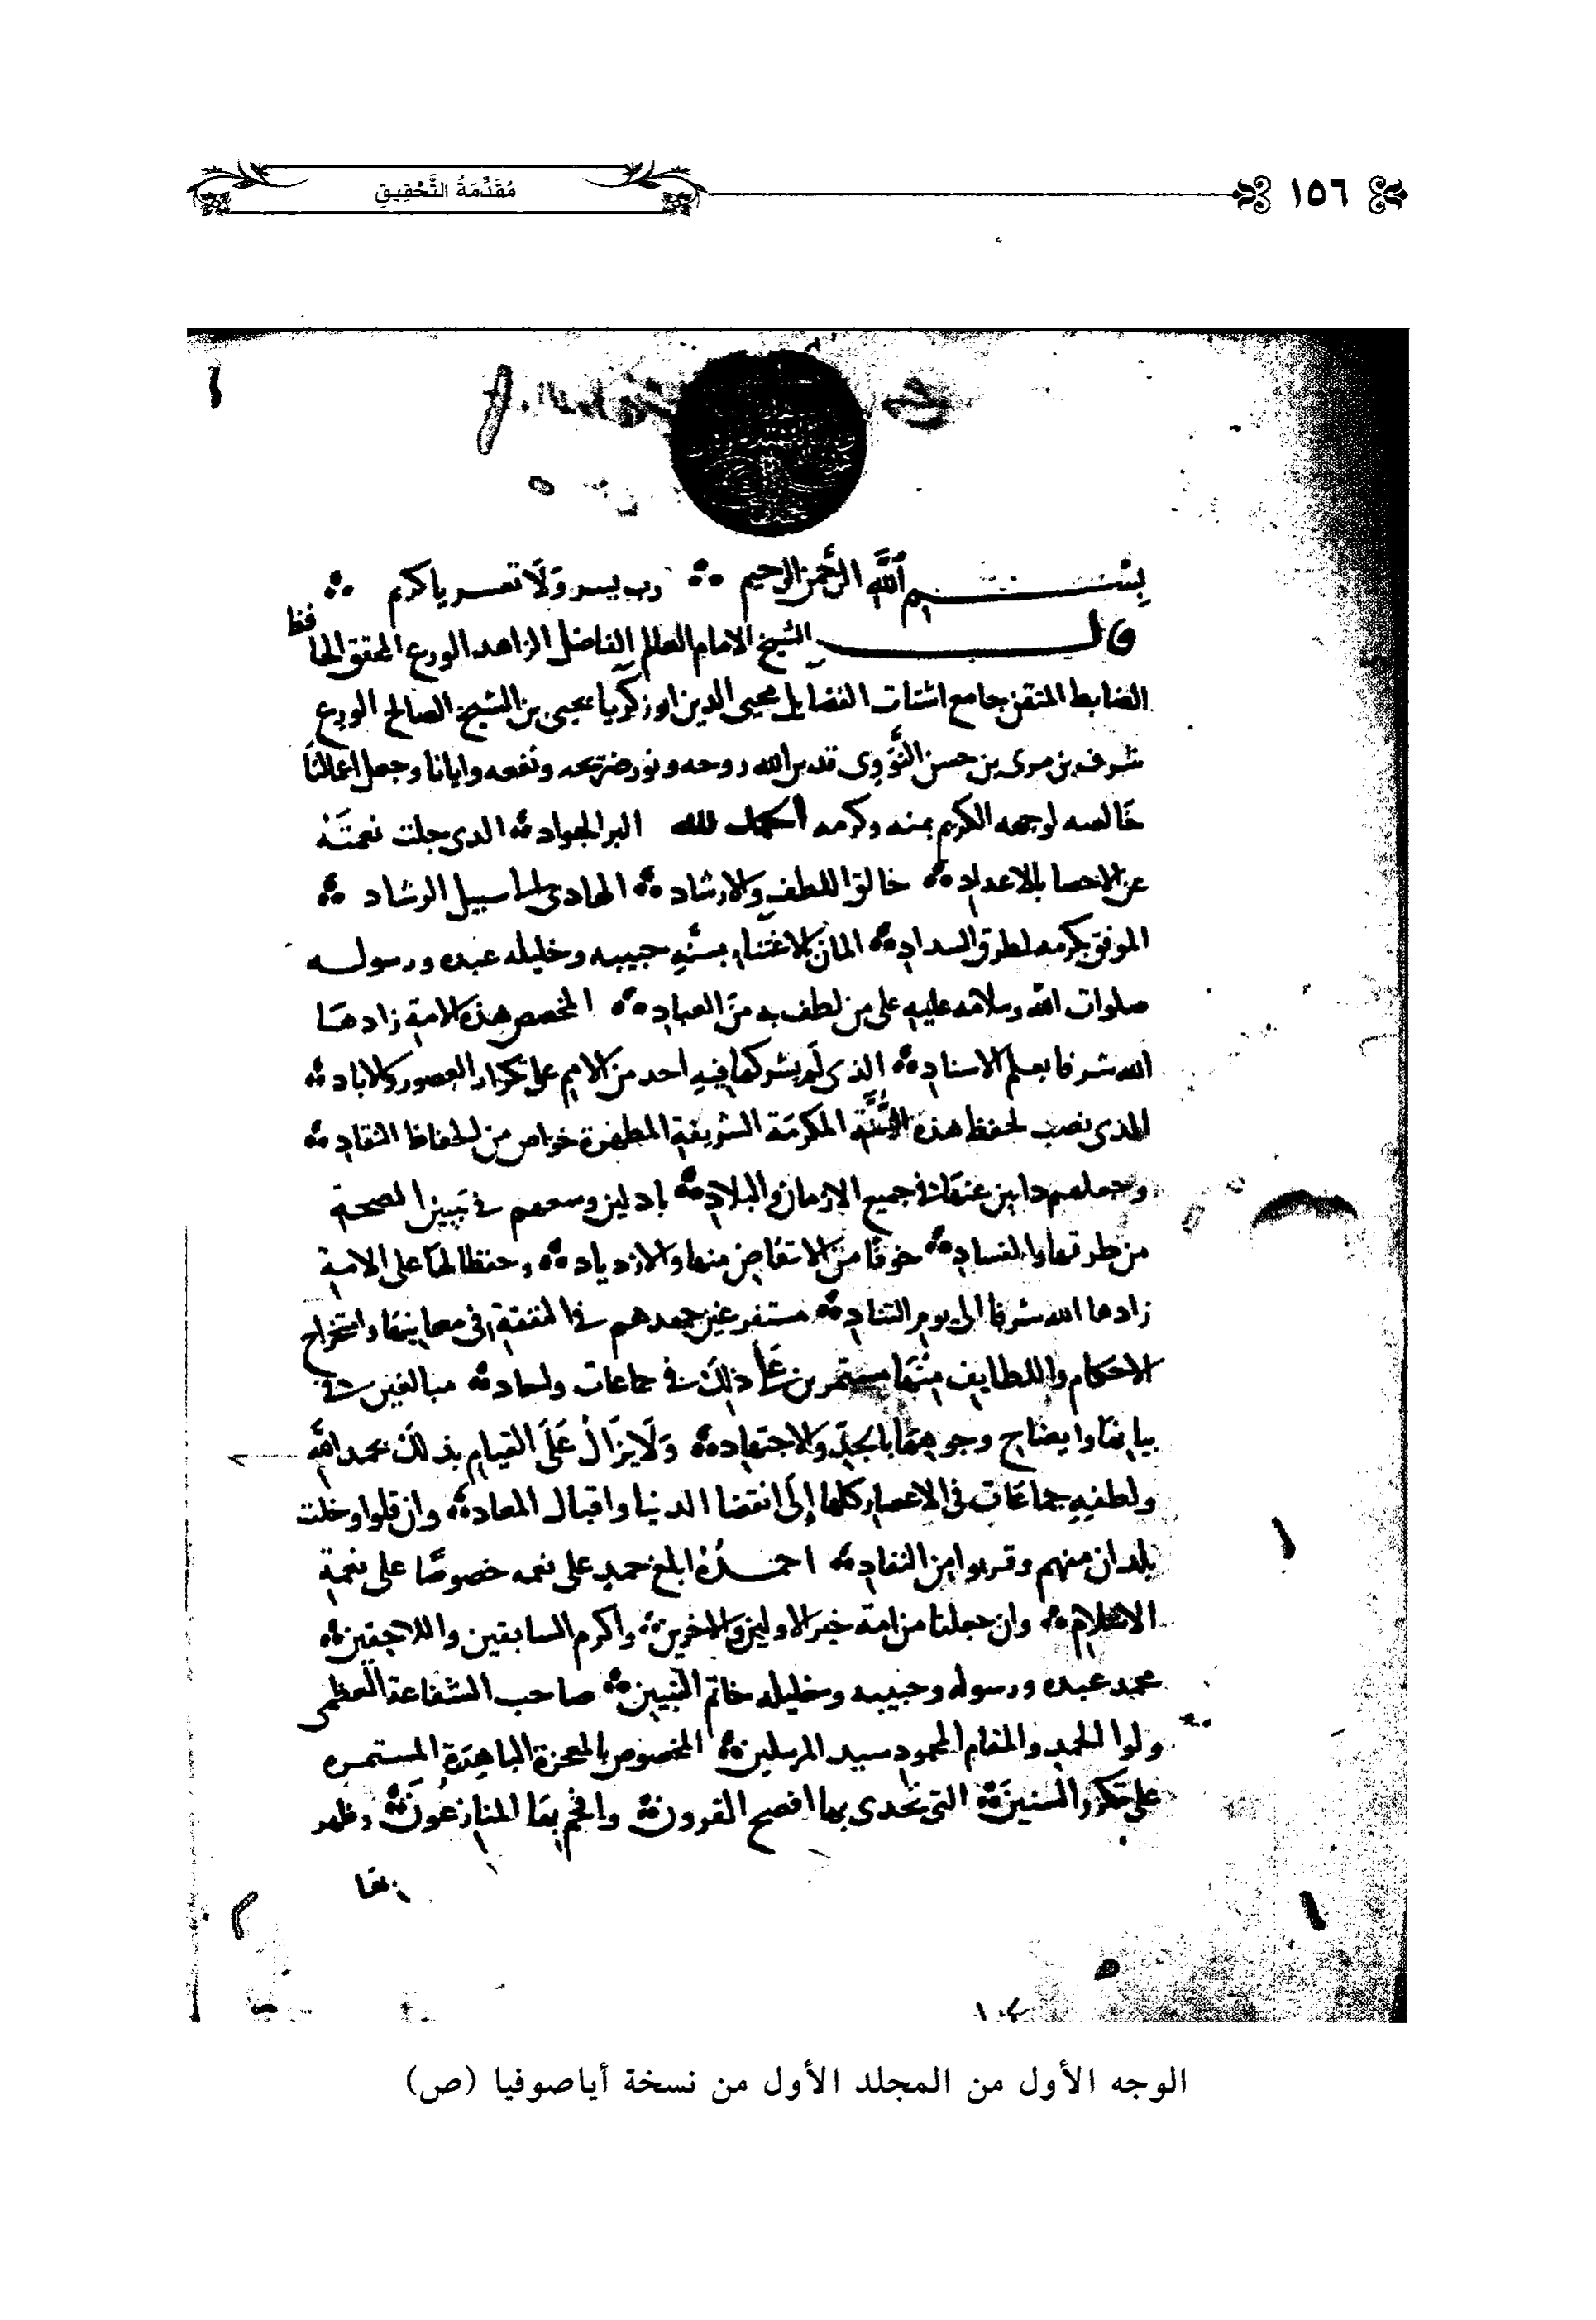 ١٥٦
مُقَدِّمَةُ التَّحْقِيقِ
بسم الله الرحمن الرحيم رب يسر وَلَا تعسر يا كريم
قال الشيخ الامام العالم الفاضل الزاهد الورع المحقق الحافظ
الضابط المتقن جامع اشتات الفضايل محيى الدين ابو زكريا يحيى بن الشيخ الصالح الورع
شرف بن مرى بن حسن النَّوَوِى قدس الله روحه ونور ضريحه ونفعه وايانا وجعل اعمالنا
خالصه لوجهه الكريم بمنه وكرمه الحمد لله البر الجواد الدى جلت نعمته
عن الاحصا بالاعداد خالق اللطف والارشاد الهادى الى سبيل الرشاد
الموفق بكرمه لطرق السداد المان بالاعتناء بسنه حبيبه وخليله عبده ورسوله
صلوات الله وسلامه عليه على من لطف به من العباد المخصص هذه الامة زادها
الله شرفا بعلم الاسناد الذى لم يشركها فيه احد من الامم على تكرار العصور والاباد
الذى نصب لحفظ هذه السُّنَّة المكرمة الشريفة المطهرة خواص من الحفاظ النقاد
وجعلهم دابين عنها في جميع الازمان والبلاد بادلين وسعهم في تبيين الصحة
من طرقها والفساد خوفا من الانتقاص منها والازدياد وحفظا لها على الامة
زادها الله شرفا الى يوم التناد مستفرغين جهدهم في التفقة في معانيها واستخراج
الاحكام واللطايف منها مستمرين على ذلك في جماعات واحاد مبالغين في
بيانها وايضاح وجوهها بالجد والاجتهاد وَلَا يزالُ عَلَى القيام بذلك بحمد الله
ولطفه جماعات في الاعصار كلها إلى انقضا الدنيا واقبال المعاد وان قلوا وخلت
بلدان منهم وقربوا من النفاد احمدُهُ ابلغ حمد على نعمه خصوصًا على نعمة
الاسلام وان جعلنا من امة خير الاولين والاخرين واكرم السابقين واللاحقين
محمد عبده ورسوله وحبيبه وخليله خاتم النبيين صاحب الشفاعة العظمى
ولوا الحمد والمقام المحمود سيد المرسلين المخصوص بالمعجزة الباهِرَة المستمره
على تكرر السنين التي تحدى بها افصح القرون وافحم بها المنازعُونَ وظهر
بها
الوجه الأول من المجلد الأول من نسخة أياصوفيا (ص)